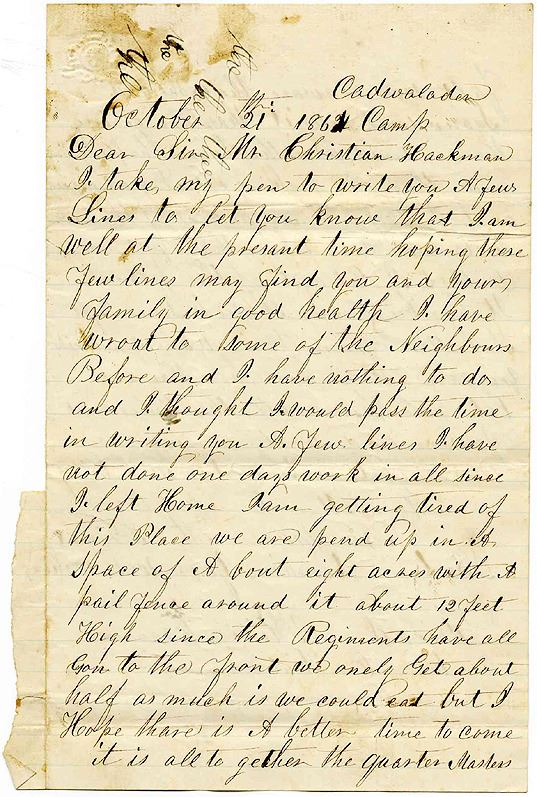 the the the
the the the
Cadwalader
October 21st 1864 Camp
Dear Sir Mr. Christian Hackman
I take my pen to write you A few
Lines to let you know that I am
well at the presant time hoping these
few lines may find you and your
family in good health I have
wroat to some of the Neighbours
Before and I have nothing to do
and I thought I would pass the time
in writing you A few lines I have
not done one days work in all since
I left Home I am getting tired of
this Place we are pend up in A
space of A bout eight acres with A
pail fence around it about 12 feet
High since the Regiments have all
Gon to the front we onely Get about
half as much is we could eat but I
Hope thare is A better time to come
it is all to gether the quarter Masters